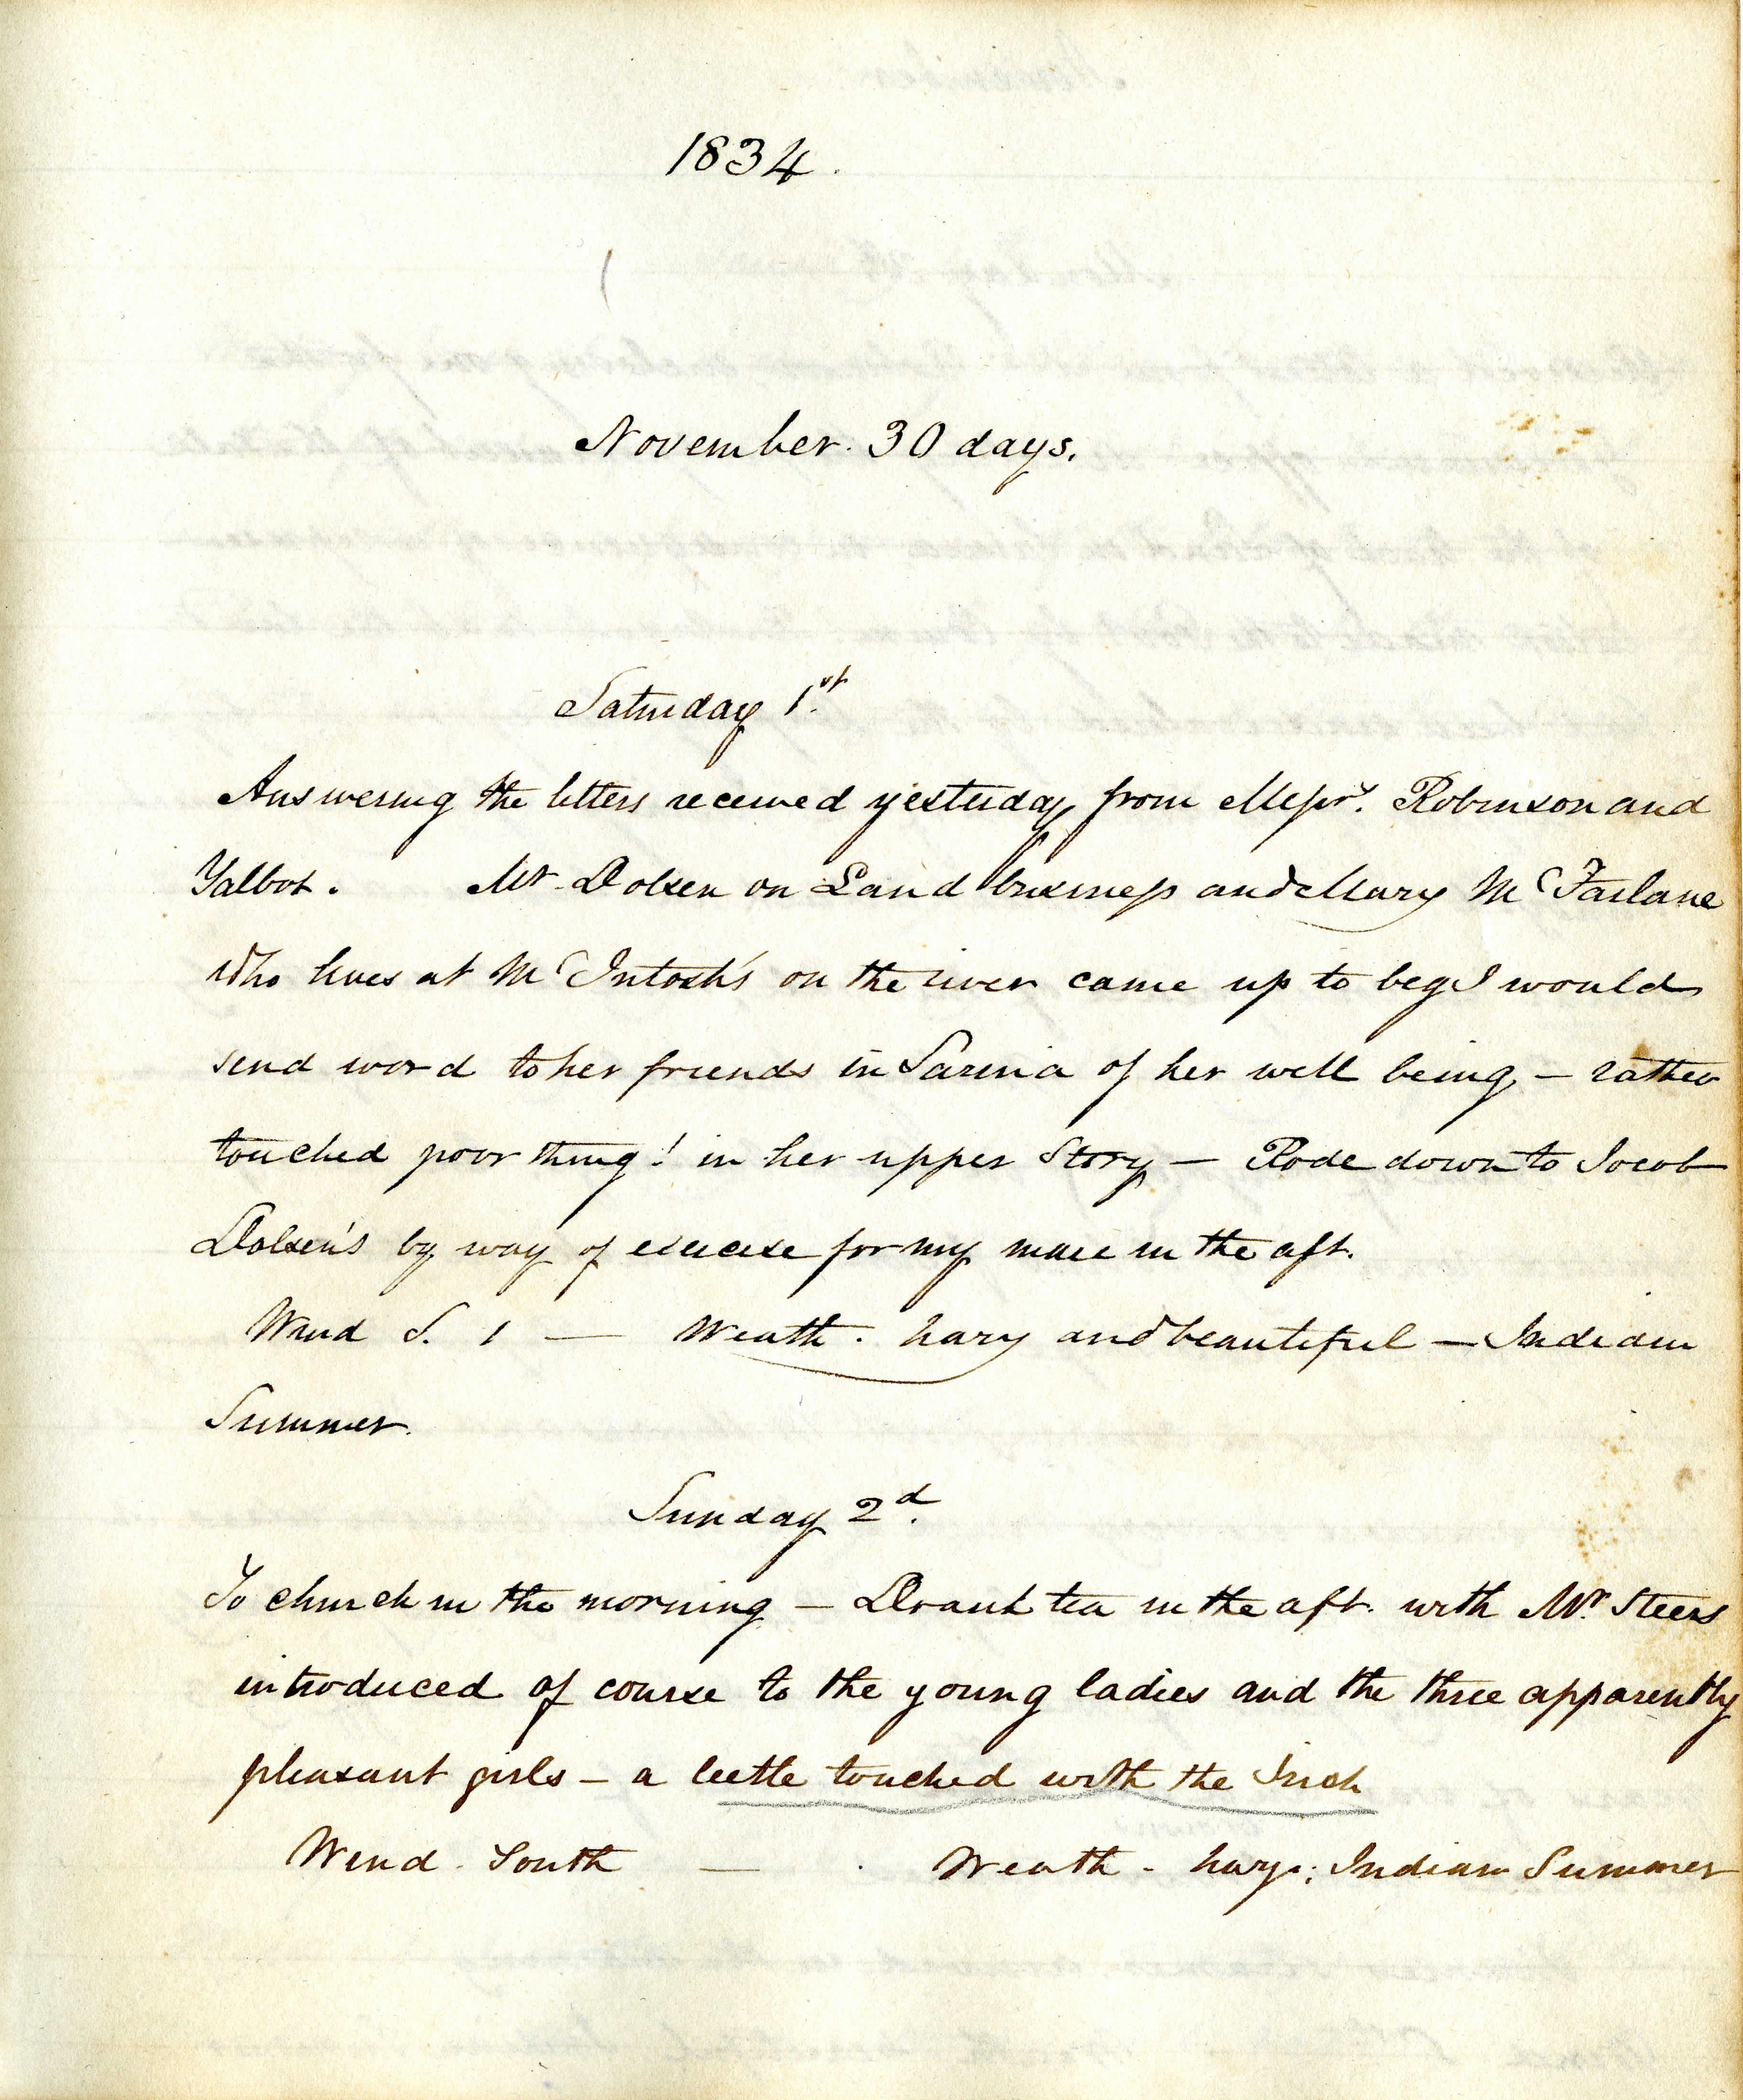 1834.
November. 30 days.
Saturday 1st.
Answering the letters received yesterday from Messrs. Robinson and
Talbot. Mr. Dolsen on Land business and Mary McFarlane
who lives at McIntosh's on the river came up to beg I would
send word to her friends in Sarnia of her well being, – rather
touched poor thing! in her upper Story – Rode down to Jocob
Dolsen's by way of exercise for my mare in the aft.
Wind S. 1 — Weath. hazy and beautiful – Indian
Summer.
Sunday 2d.
To church in the morning – Drank tea in the aft. with Mr. Steers
introduced of course to the young ladies and the three apparently
pleasant girls – a leetle touched with the Irish
Wind. South — Weath - hazy; Indian Summer